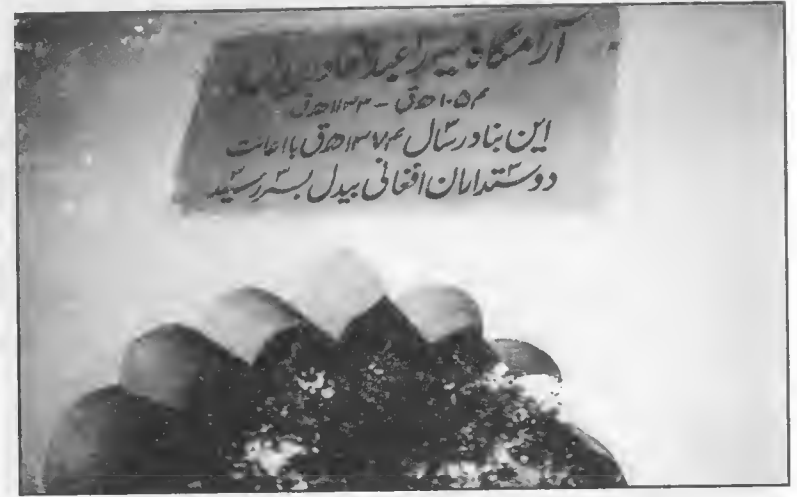 آرامگاه میرزا عبدالقادر بیدل
۱۰۵۴ هـ ق – ۱۱۳۳ هـ ق
این بنا در سال ۱۳۷۴ هـ ق با اعانت
دوستداران افغانی بیدل بسر رسید